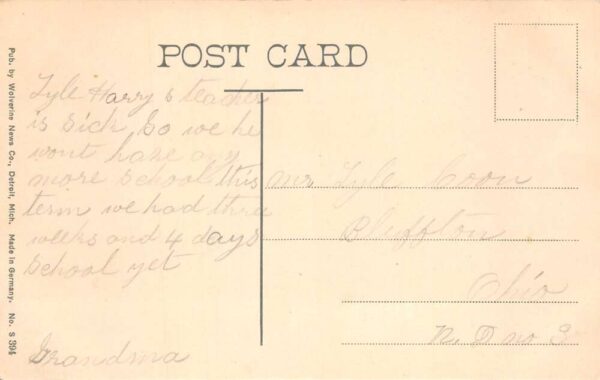 POST CARD
Lyle Harry s teacher
is sick so we he
wont have any
more school this
term we had three
weeks and 4 days
school yet
Grandma
Mr Lyle Coon
Bluffton
Ohio
R. D no 3
Pub. by Wolverine News Co., Detroit, Mich. Made in Germany. No. S 394